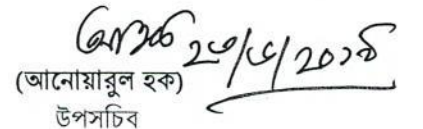 ২৩/৬/২০১৯
(আনোয়ারুল হক)
উপসচিব